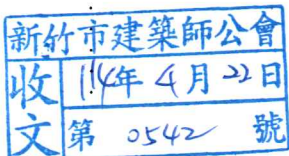 新竹市建築師公會
收文
114年4月22日
第 0542 號